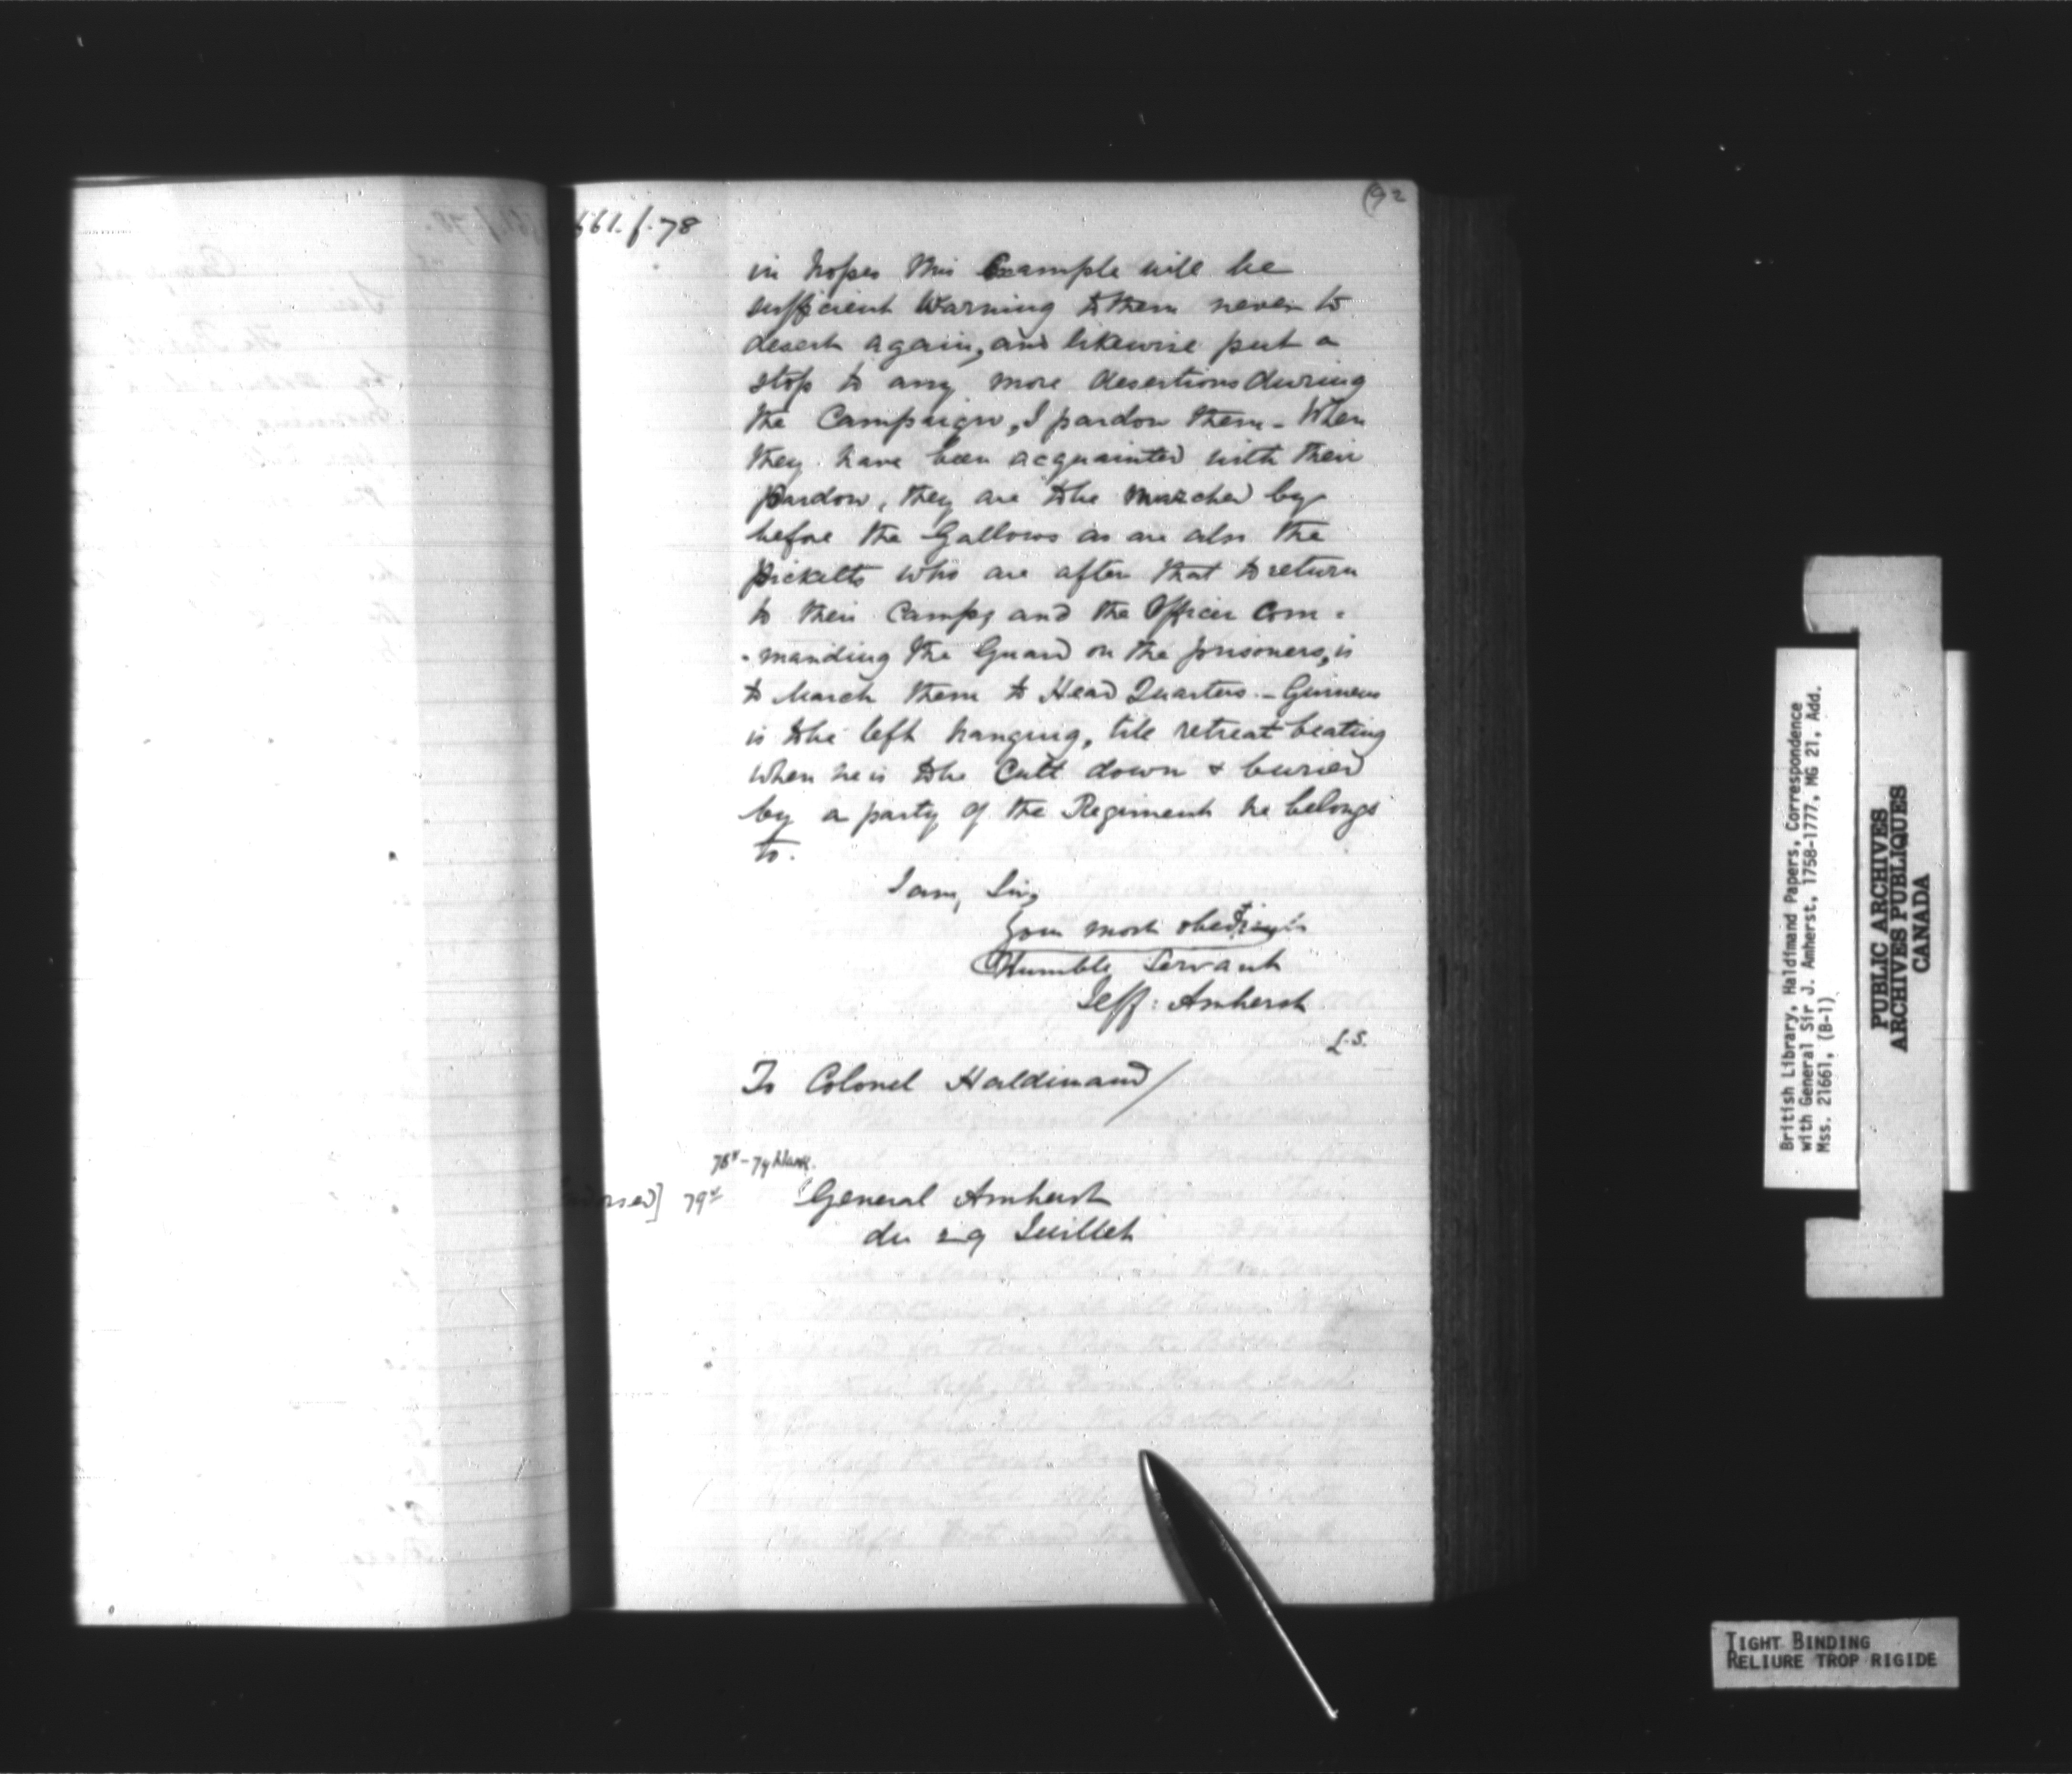 (92
661. f. 78
in hopes this Example will be
sufficient Warning to them never to
desert again, and likewise put a
stop to any more desertions during
the Campaign, I pardon them - When
they have been acquainted with their
pardon, they are to be marched by
before the Gallows as are also the
picketts who are after that to return
to their Camps and the Officer Com-
-manding the Guard on the prisoners, is
to March them to Head Quarters -
is to be left hanging, till retreat beating
when he is to be Cutt down & buried
by a party of the Regiment he belongs
to.
I am, Sir,
Your most obedient
Humble Servant
Jeff: Amherst
L.S.
To Colonel Haldimand/
78v - 79 blank.
79v General Amherst
du 29 Juillet
British Library, Haldimand Papers, Correspondence
with General Sir J. Amherst, 1758-1777, MG 21, Add.
Mss. 21661, (B-1)
PUBLIC ARCHIVES
ARCHIVES PUBLIQUES
CANADA
TIGHT BINDING
RELIURE TROP RIGIDE